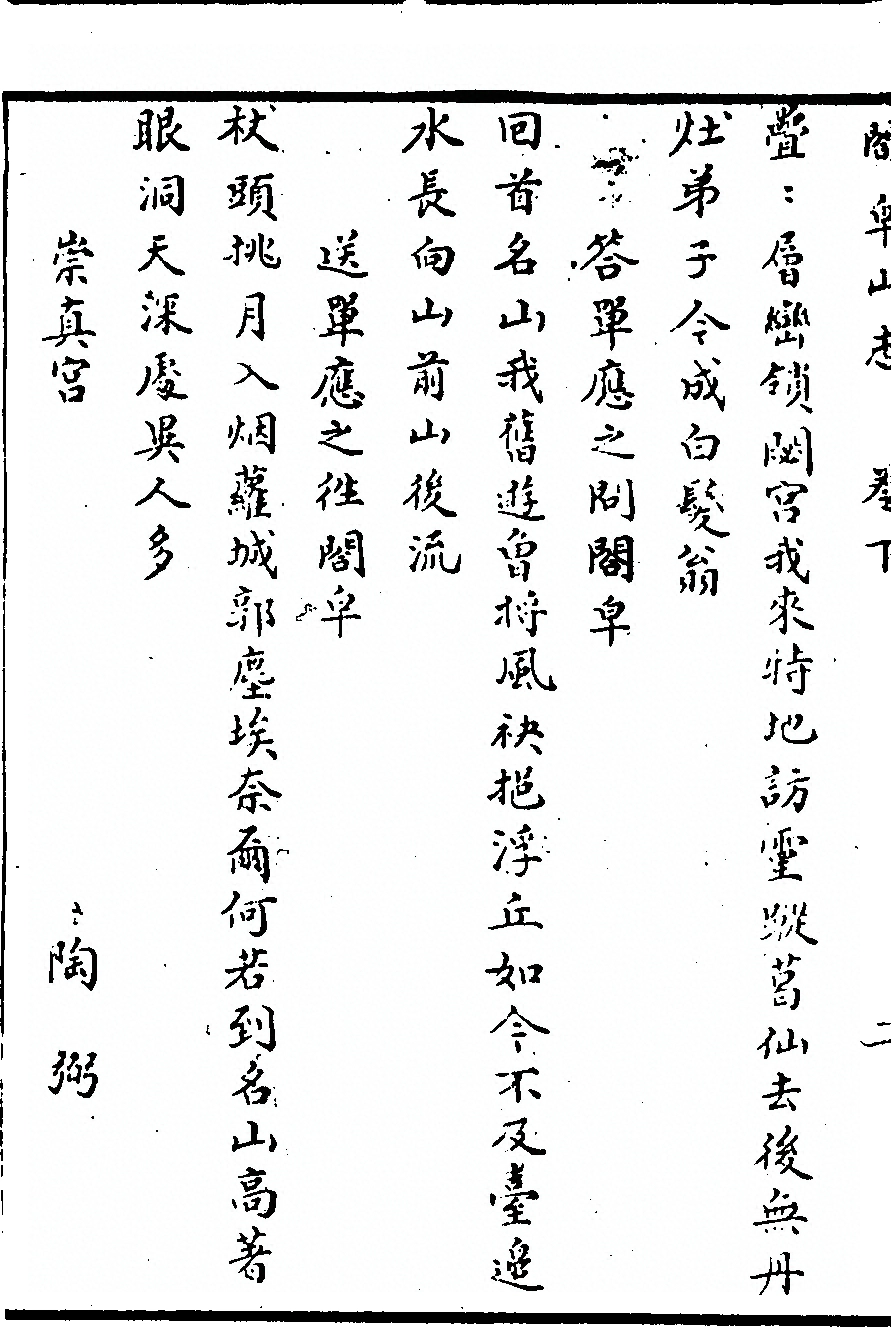 閤皁山志　卷下　二
疊〻層巒鎖閟宮我來特地訪靈蹤葛仙去後無丹
灶弟子今成白髮翁
答單應之問閤皁
回首名山我舊遊曾捋風袂挹浮丘如今不及臺邊
水長向山前山後流
送單應之徃閤皁
杖頭挑月入烟蘿城郭塵埃奈爾何若到名山高著
眼洞天深處異人多
崇真宮　　陶弼